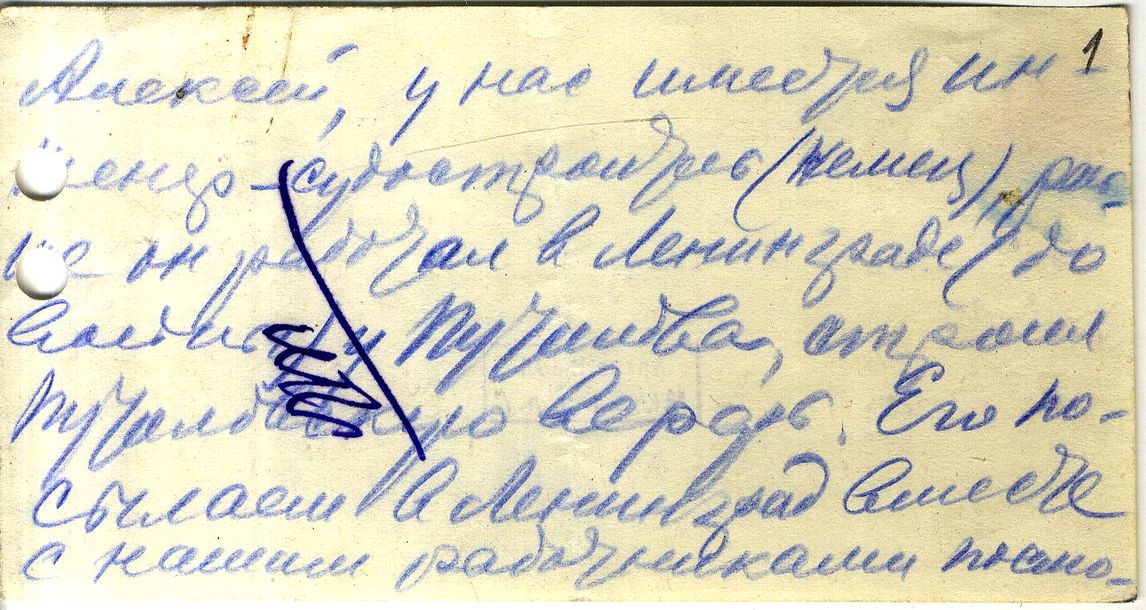 1
Алексей, у нас имеется ин-
женер-судостроитель (немец), рань-
ше он работал в Ленинграде (до
войны) у Путилова, строил
Путиловскую верфь. Его по-
сылаем в Ленинград вместе
с нашим работниками посмо-